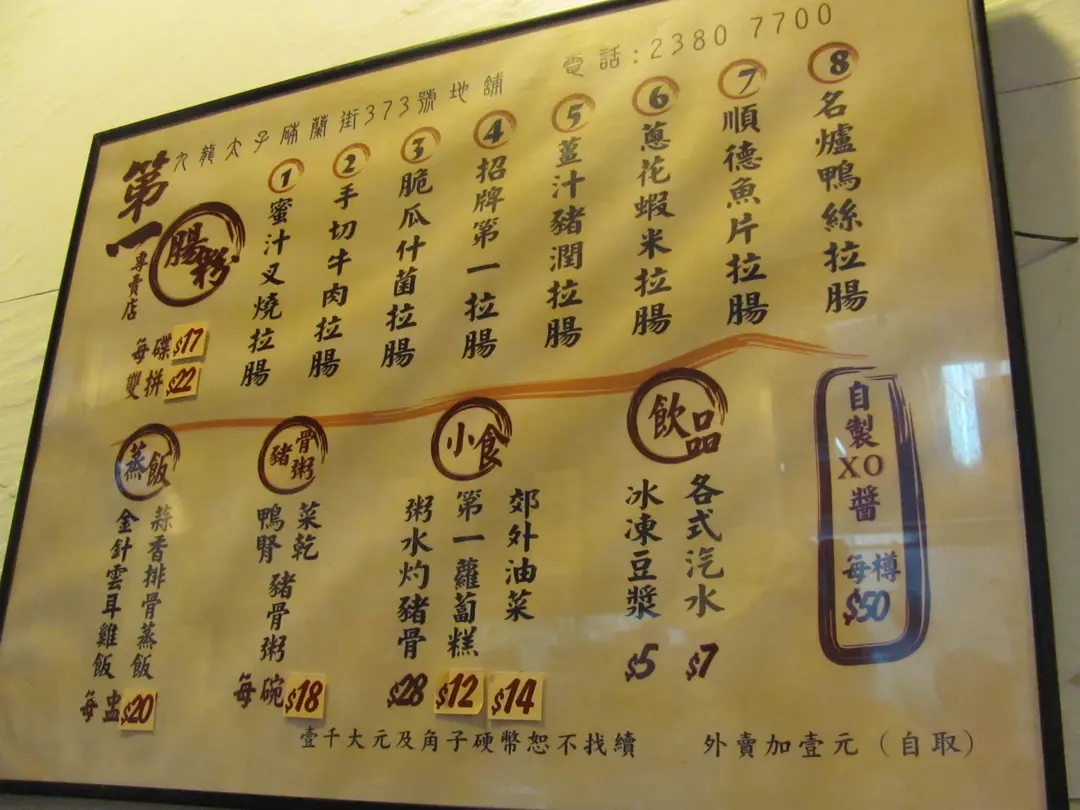 九龍太子砵蘭街373號地舖
電話:2380 7700
第一
腸粉
專賣店
每碟$17
雙拼$22
1 蜜汁叉燒拉腸
2 手切牛肉拉腸
3 脆瓜什菌拉腸
4 招牌第一拉腸
5 薑汁豬潤拉腸
6 蔥花蝦米拉腸
7 順德魚片拉腸
8 名爐鴨絲拉腸
蒸飯
蒜香排骨蒸飯
金針雲耳雞飯
每盅$20
豬骨粥
菜乾
鴨腎
豬骨粥
每碗$18
小食
郊外油菜
$14
第一蘿蔔糕
$12
粥水灼豬骨
$28
飲品
各式汽水
$7
冰凍豆漿
$5
自製XO醬
每樽
$50
壹千大元及角子硬幣恕不找續
外賣加壹元(自取)